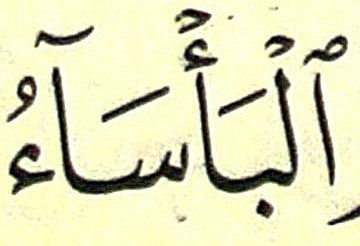 ٱلْبَأْسَآءُ